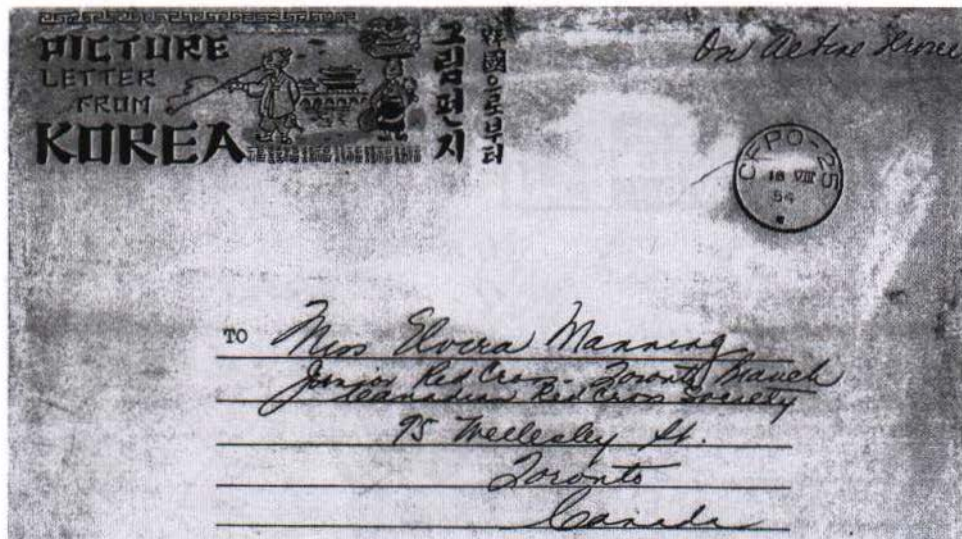 PICTURE
LETTER
FROM
KOREA
그림편지
韓國으로부터
On Active Service
CFPO-25
18 VIII
54
TO Miss Elvira Manning
Junior Red Cross - Toronto Branch
Canadian Red Cross Society
95 Wellesley St.
Toronto
Canada